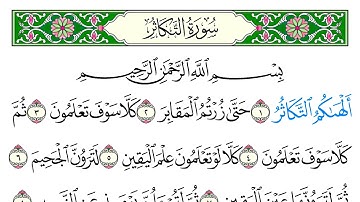 سُورَةُ التَّكَاثُرِ
بِسْمِ ٱللَّهِ ٱلرَّحْمَٰنِ ٱلرَّحِيمِ
أَلْهَىٰكُمُ ٱلتَّكَاثُرُ ١ حَتَّىٰ زُرْتُمُ ٱلْمَقَابِرَ ٢ كَلَّا سَوْفَ تَعْلَمُونَ ٣ ثُمَّ
كَلَّا سَوْفَ تَعْلَمُونَ ٤ كَلَّا لَوْ تَعْلَمُونَ عِلْمَ ٱلْيَقِينِ ٥ لَتَرَوُنَّ ٱلْجَحِيمَ ٦